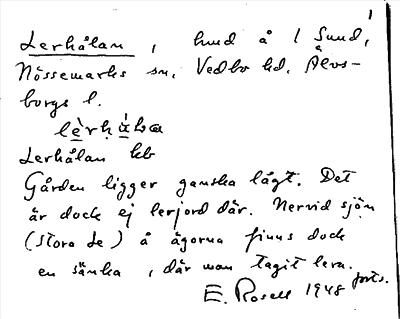 1
Lerhålan, hmd å 1 Sund,
Nössemarks sn, Vedbo hd, Älvs-
borgs l.
Lerhålan kb
Gården ligger ganska lågt. Det
är dock ej lerjord där. Nervid sjön
(Stora Le) å ägorna finns dock
en sänka, där man tagit lera.
forts.
E. Rosell 1948